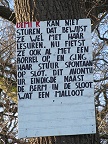 HENK KAN NIET
STUREN, DAT BEWIJST
ZE WEL MET HAAR
LESUREN. NU FIETST
ZE OOK AL MET EEN
BORREL OP, EN GING
HAAR STUUR SPONTAAN
OP SLOT. DIT AVONTU
UR EINDIGDE NAAST
DE BERM IN DE SLOOT
WAT EEN MALLOOT